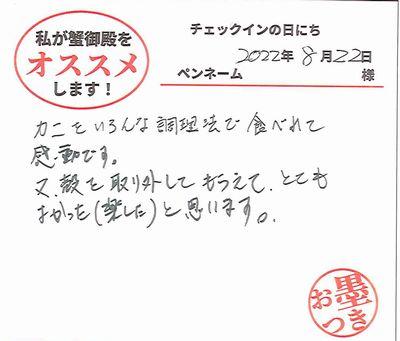 私が蟹御殿を
オススメ
します!
チェックインの日にち
2022年 8月22日
ペンネーム 様
カニをいろんな調理法で食べれて
感動です。
又、殻を取り外してもらえて、とても
よかった(楽した)と思います。
お墨つき